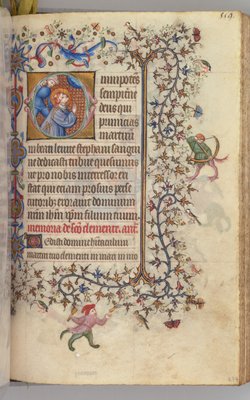 Omnipotens
sempitne
deus qui
primicias
martirum
in beati leuite stephani sangui
ne dedicasti tribue quesumus
ut pro nobis intercessor exi
stat qui eciam pro suis perse
cutoribus exorauit dominum
nrm ihm xpm filium tuum.
memoria de sco clemente. ant.
Dedisti domine habitaculum
martiri tuo clementi in mari in mo